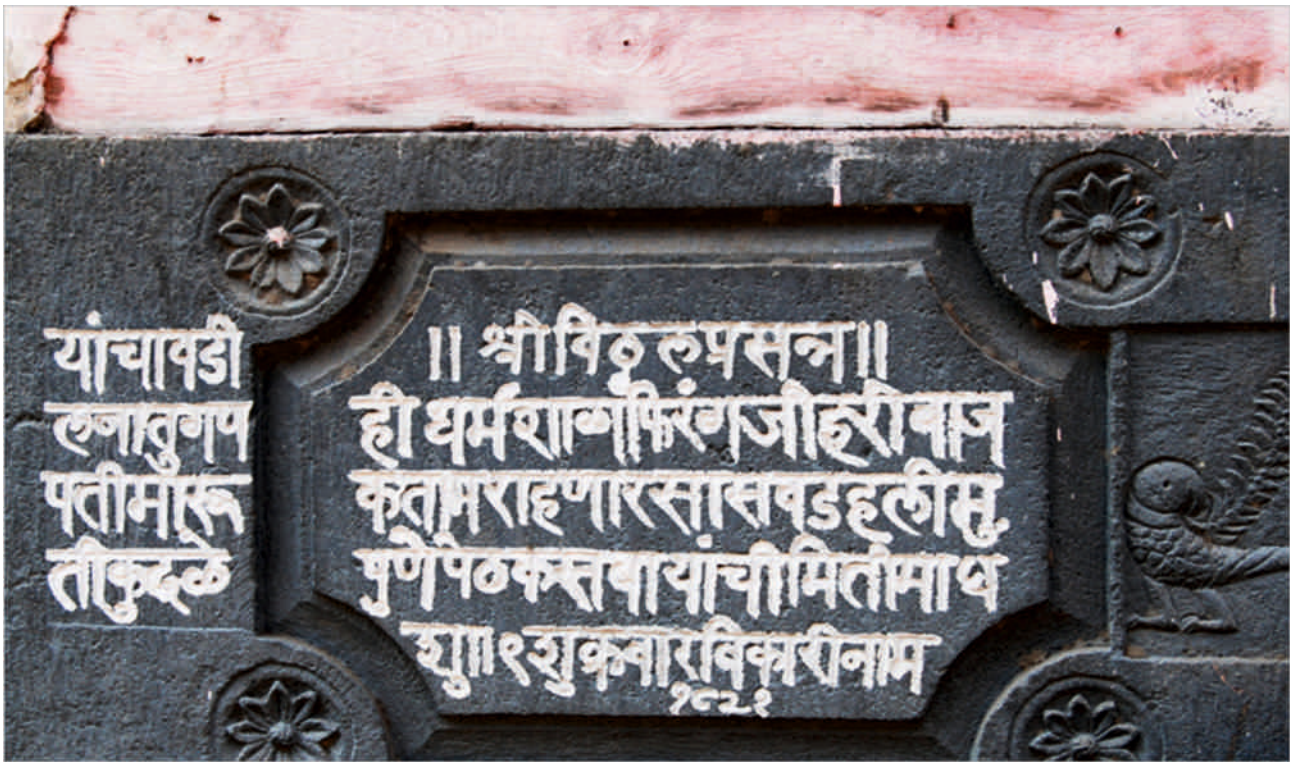 यांचावडी
लनातुगण
पतीमारू
तीकुदळे
॥ श्रीविठ्ठलप्रसन्न॥
ही धर्मशाळा फिरंगजी हरी वाज
राहणार सासवड हली मु.
पुणे पेठ कसबा यांची मिती माघ
शु॥ ९ शुक्रवार विकारी नाम
१८२१